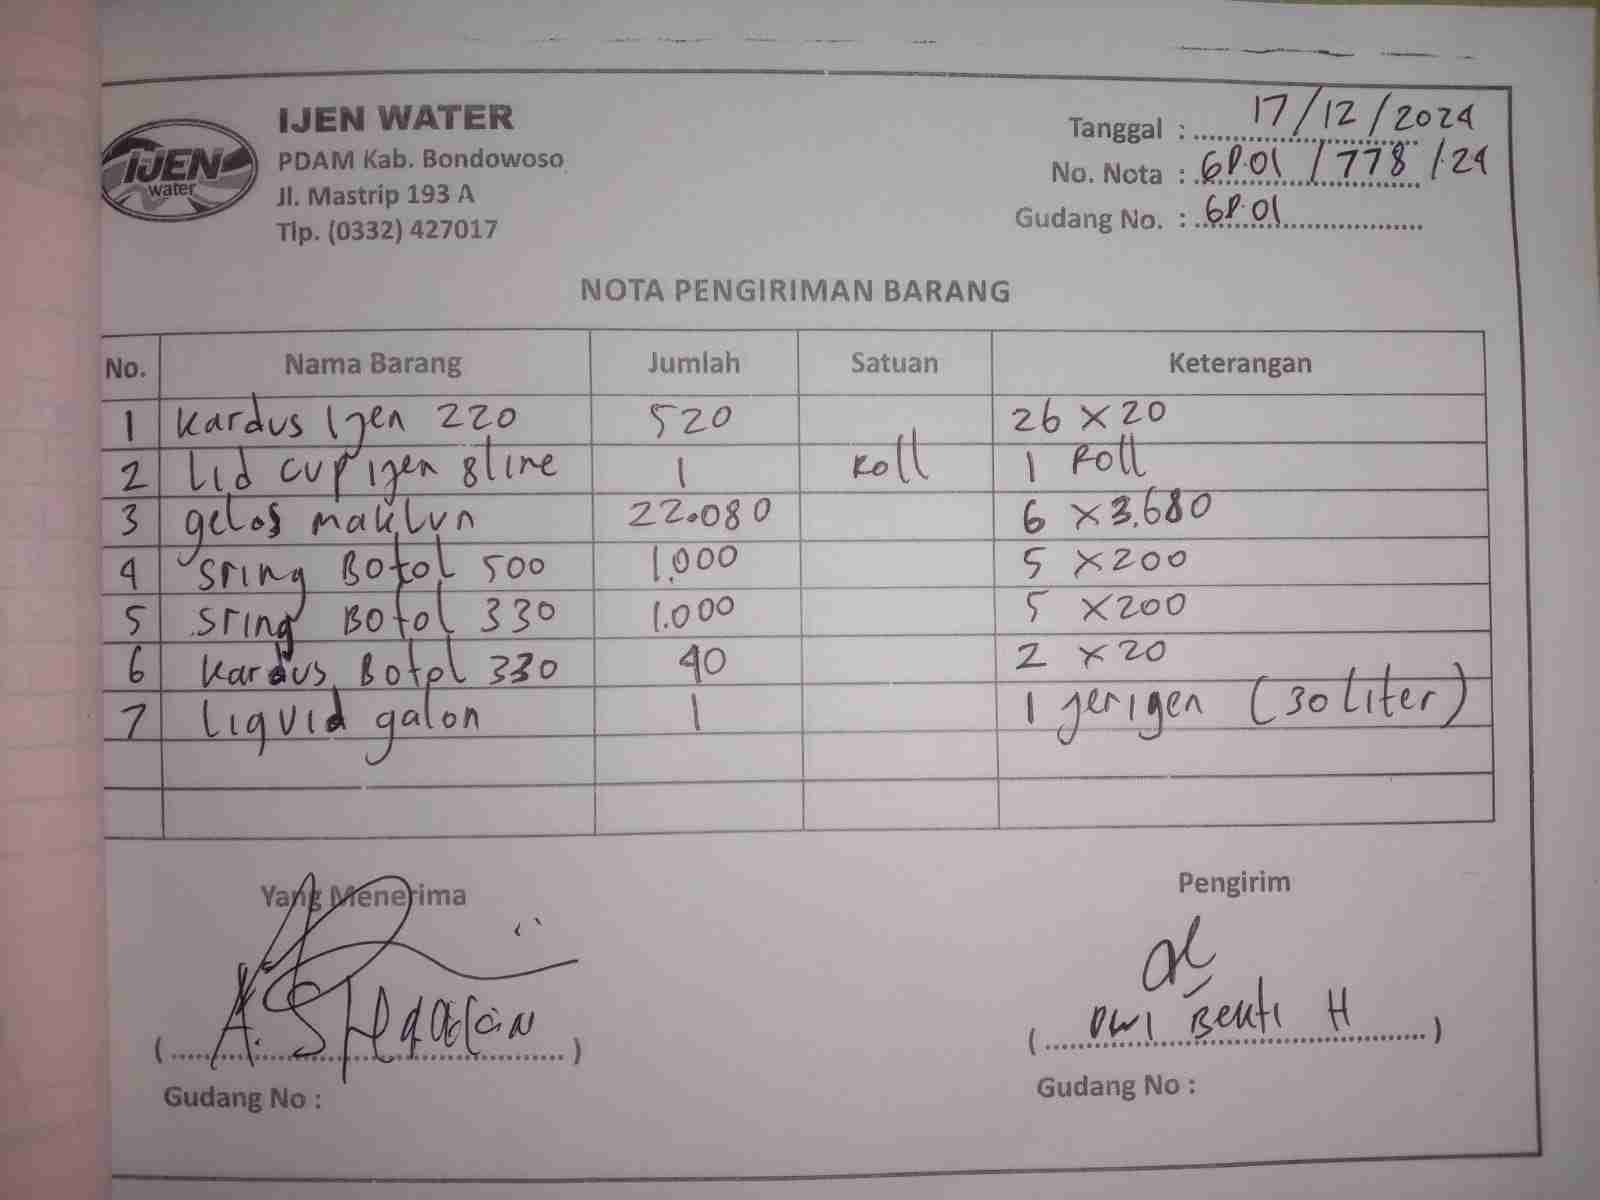 IJEN WATER
PDAM Kab. Bondowoso
Jl. Mastrip 193 A
Tlp. (0332) 427017
IJEN
water
Tanggal : 17/12/2024
No. Nota : GP.01 /778 /24
Gudang No. : GP.01
NOTA PENGIRIMAN BARANG
No. Nama Barang Jumlah Satuan Keterangan
1 Kardus Ijen 220 520 26 x 20
2 Lid cup ijen 8line 1 Roll 1 Roll
3 gelas maklun 22.080 6 x 3.680
4 sring Botol 500 1.000 5 x 200
5 sring Botol 330 1.000 5 x 200
6 kardus Botol 330 40 2 x 20
7 liquid galon 1 1 jerigen (30 liter)
Yang Menerima
Pengirim
Dwi Bekti H
Gudang No :
Gudang No :